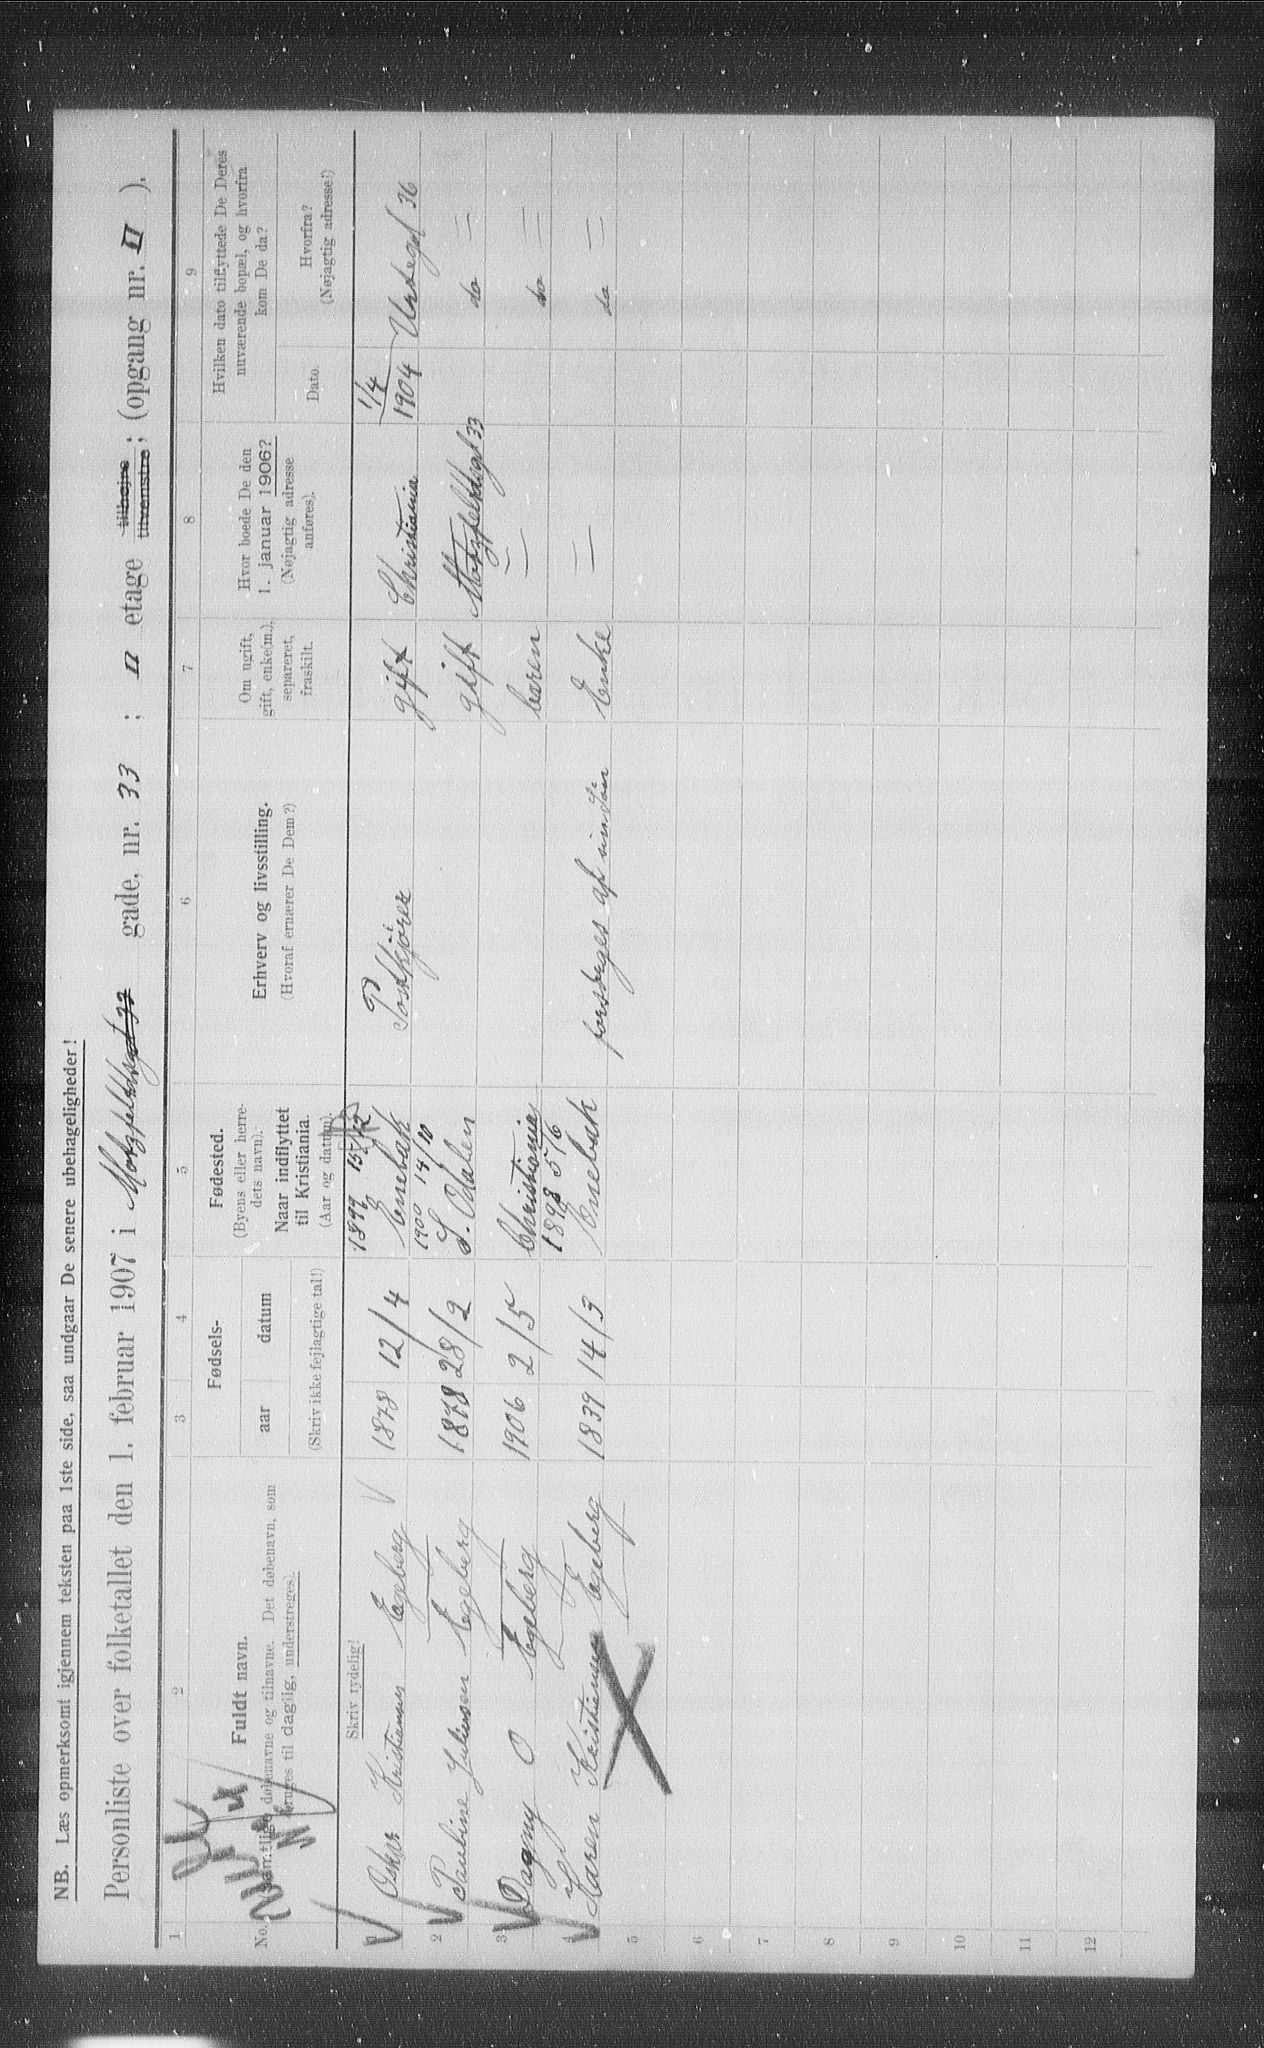 NB. Læs opmerksomt igjennem teksten paa 1ste side, saa undgaar De senere ubehageligheder!
Personliste over folketallet den 1. februar 1907 i Motzfeldtsgt 33 gade, nr. 33 ; II etage tilhøjre tilvenstre ; (opgang nr. II ).
1 2 3 4 5 6 7 8 9
No. Fuldt navn.
(Samtlige døbenavne og tilnavne. Det døbenavn, som bruges til daglig, understreges).
Fødsels-
aar datum
(Skriv ikke fejlagtige tal!)
Fødested.
(Byens eller herredets navn).
Naar indflyttet til Kristiania.
(Aar og datum).
Erhverv og livsstilling.
(Hvoraf ernærer De Dem?)
Om ugift, gift, enke(m.), separeret, fraskilt.
Hvor boede De den 1. januar 1906?
(Nøjagtig adresse anføres).
Hvilken dato tilflyttede De Deres nuværende bopæl, og hvorfra kom De da?
Dato. Hvorfra?
(Nøjagtig adresse!)
Skriv tydelig!
1 Oskar Kristiansen Egeberg 1878 12/4 1899 15/12 Enebak Postkjører gift Christiania 1/4 1904 Urtegd 36
2 Pauline Juliusen Egeberg 1878 28/2 1900 14/10 S. Odalen gift Motzfeldtsgt 33 do =
3 Dagny O Egeberg 1906 2/5 Christiania baren — do =
4 Karen Kristiansen Egeberg 1839 14/3 1898 5/6 Eneback forsørges af sin Søn Enke = do =
5
6
7
8
9
10
11
12